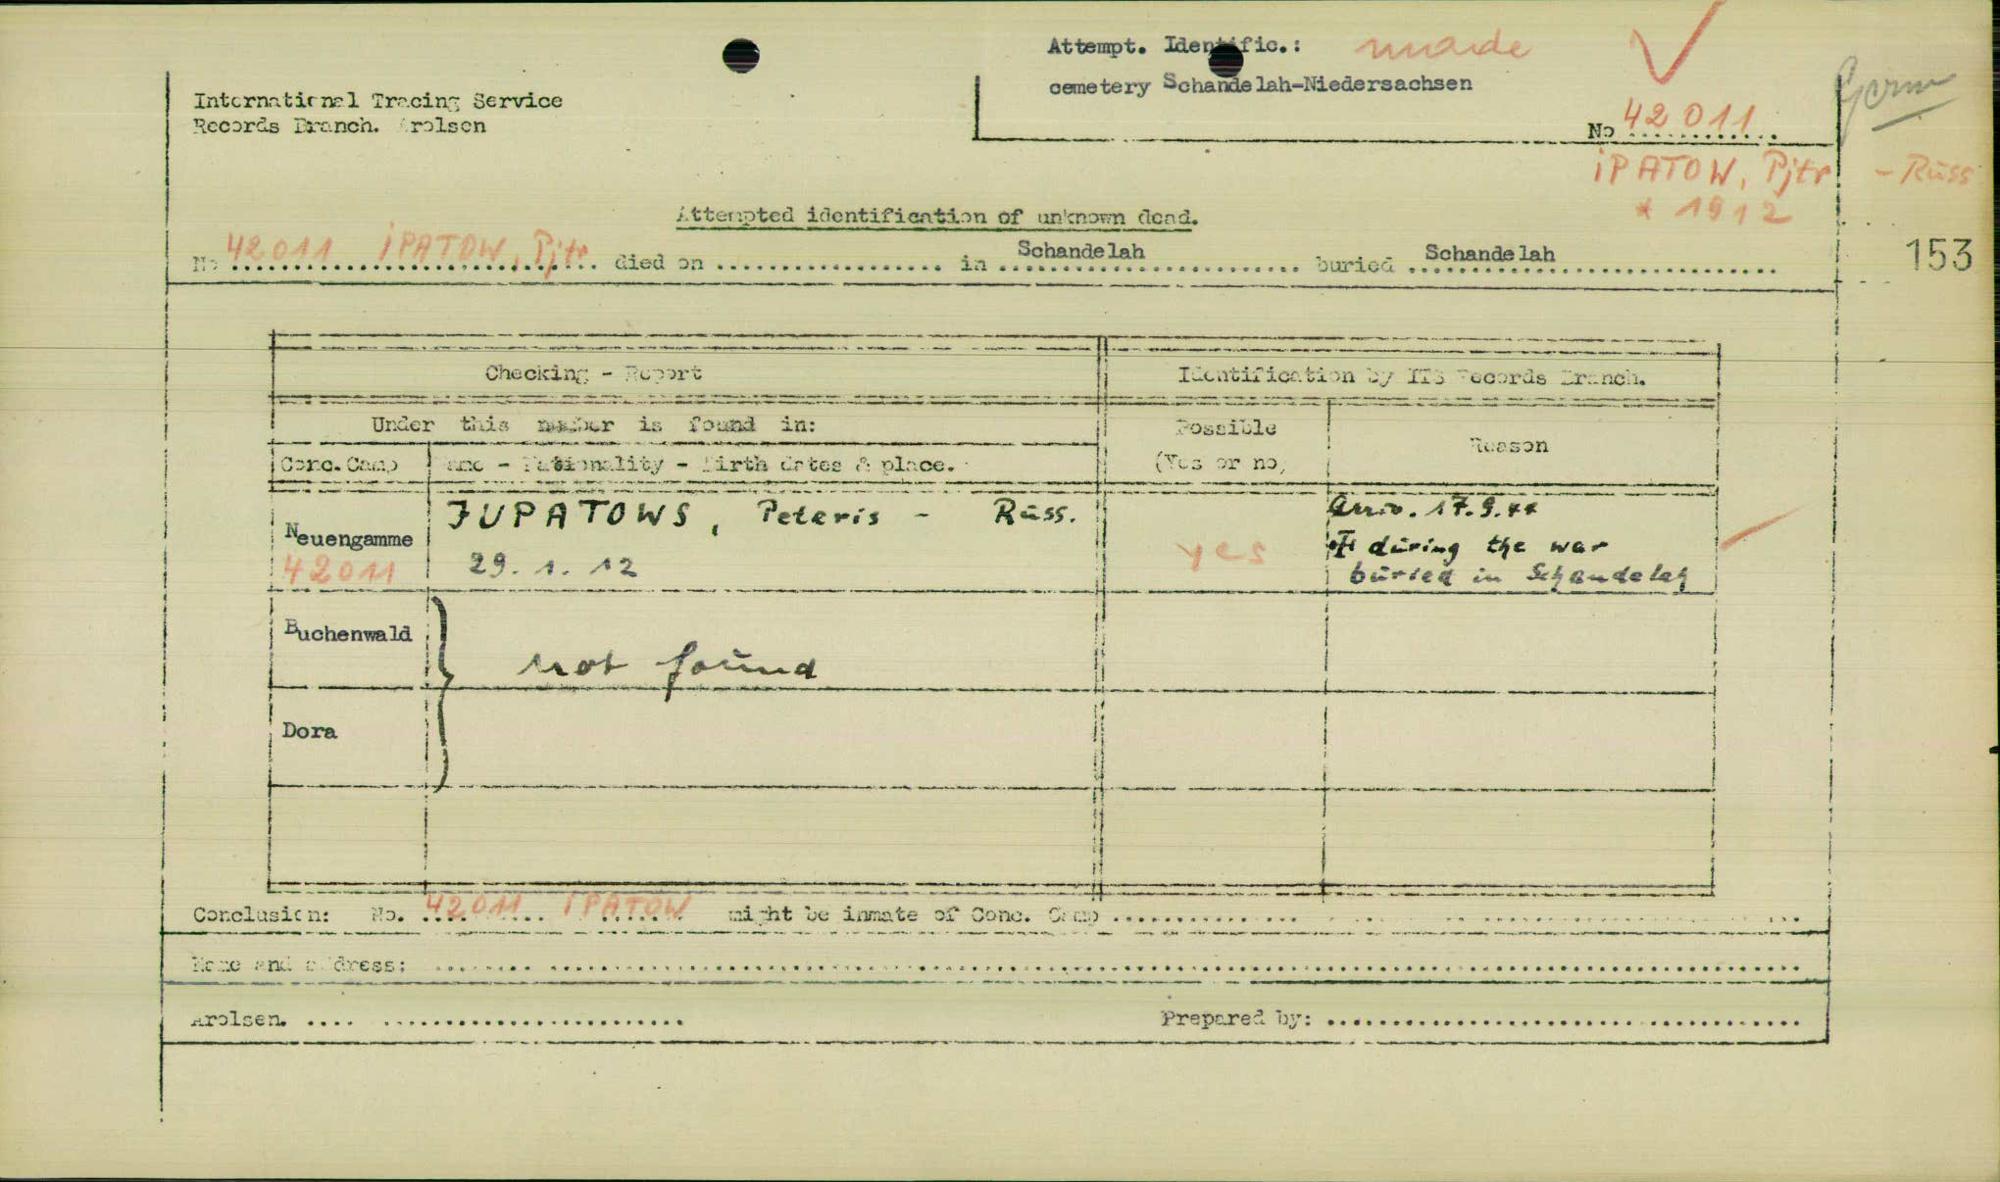 Attempt. Identific.: made
cemetery Schandelah-Niedersachsen
Germ
International Tracing Service
Records Branch. Arolsen
No 42011
IPATOW, Pjtr - Russ
* 1912
Attempted identification of unknown dead.
No 42011 IPATOW, Pjtr died on ........ in Schandelah buried Schandelah
153
Checking - Report
Identification by ITS Records Branch.
Under this number is found in:
Possible
(Yes or no)
Reason
Conc. Camp
Name - Nationality - Birth dates & place.
Neuengamme
42011
JUPATOWS, Peteris - Russ.
29. 1. 12
yes
Arriv. 17.9.44
during the war
buried in Schandelah
Buchenwald
not found
Dora
Conclusion: No. 42011 IPATOW might be inmate of Conc. Camp ........
Name and address: ........
Arolsen. ........ Prepared by: ........